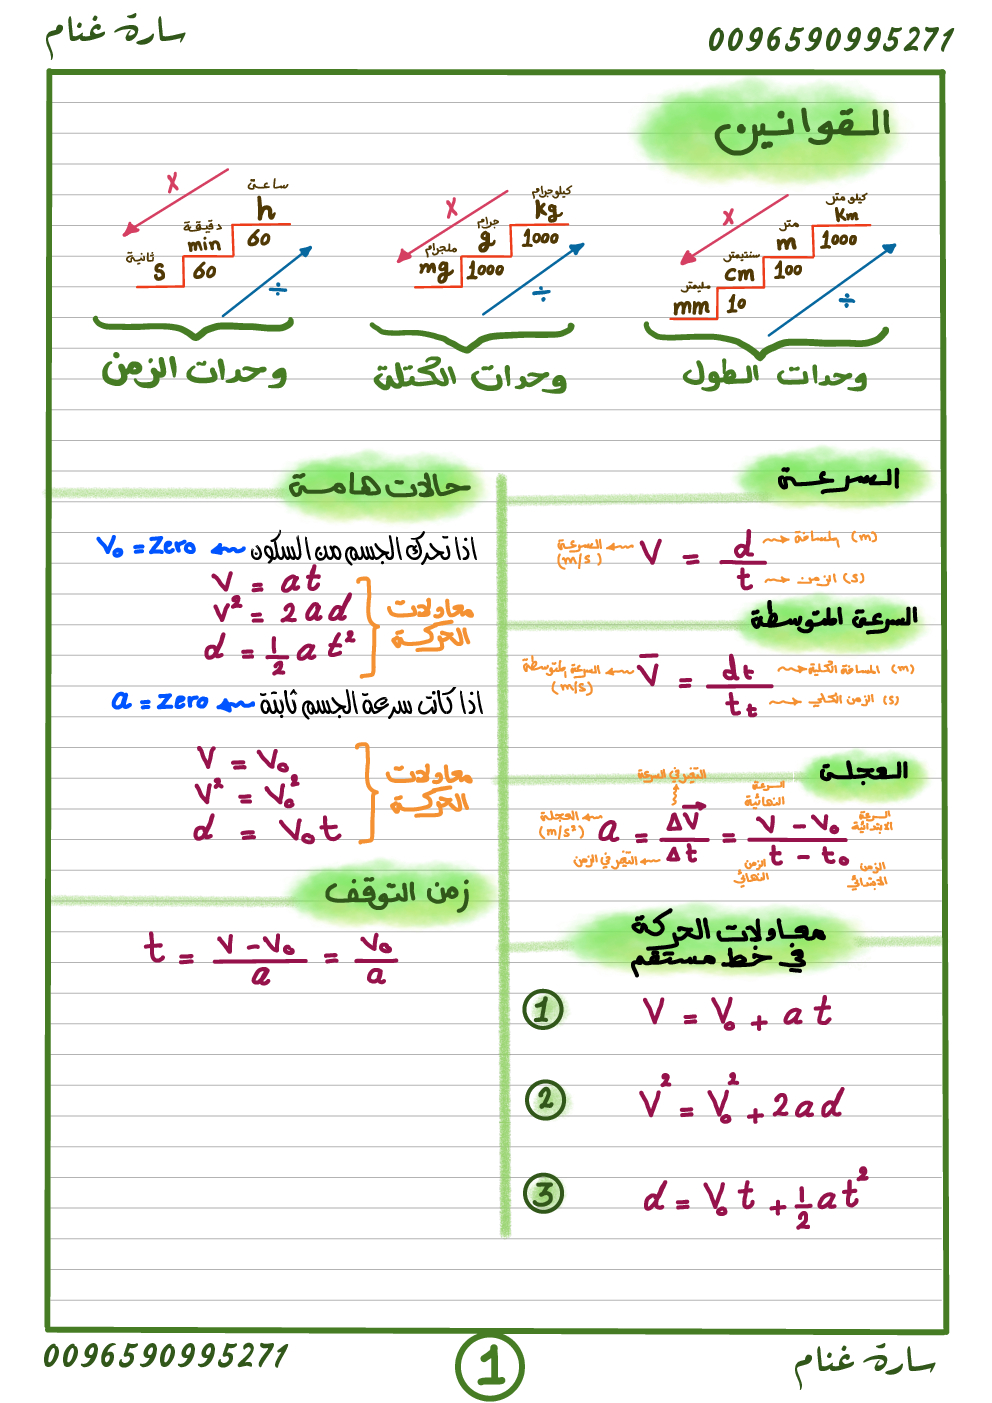 سارة غنام
0096590995271
القوانين
كيلو متر
Km
متر
m
1000
سنتيمتر
cm
100
مليمتر
mm
10
x
÷
وحدات الطول
كيلوجرام
kg
جرام
g
1000
ملجرام
mg
1000
x
÷
وحدات الكتلة
ساعة
h
دقيقة
min
60
ثانية
s
60
x
÷
وحدات الزمن
السرعة
السرعة (m/s) V = d / t
المسافة (m)
الزمن (s)
السرعة المتوسطة
السرعة المتوسطة (m/s) V̅ = dt / tt
المسافة الكلية (m)
الزمن الكلي (s)
العجلة
التغير في السرعة
السرعة النهائية
السرعة الابتدائية
العجلة (m/s²) a = ΔV / Δt = V - V₀ / t - t₀
التغير في الزمن
الزمن النهائي
الزمن الابتدائي
معادلات الحركة
في خط مستقم
1 V = V₀ + at
2 V² = V₀² + 2ad
3 d = V₀t + ½at²
حالات هامة
اذا تحرك الجسم من السكون V₀ = Zero
V = at
V² = 2ad
d = ½ at²
معادلات
الحركة
اذا كانت سرعة الجسم ثابتة a = Zero
V = V₀
V² = V₀²
d = V₀t
معادلات
الحركة
زمن التوقف
t = V - V₀ / a = V₀ / a
0096590995271
1
سارة غنام